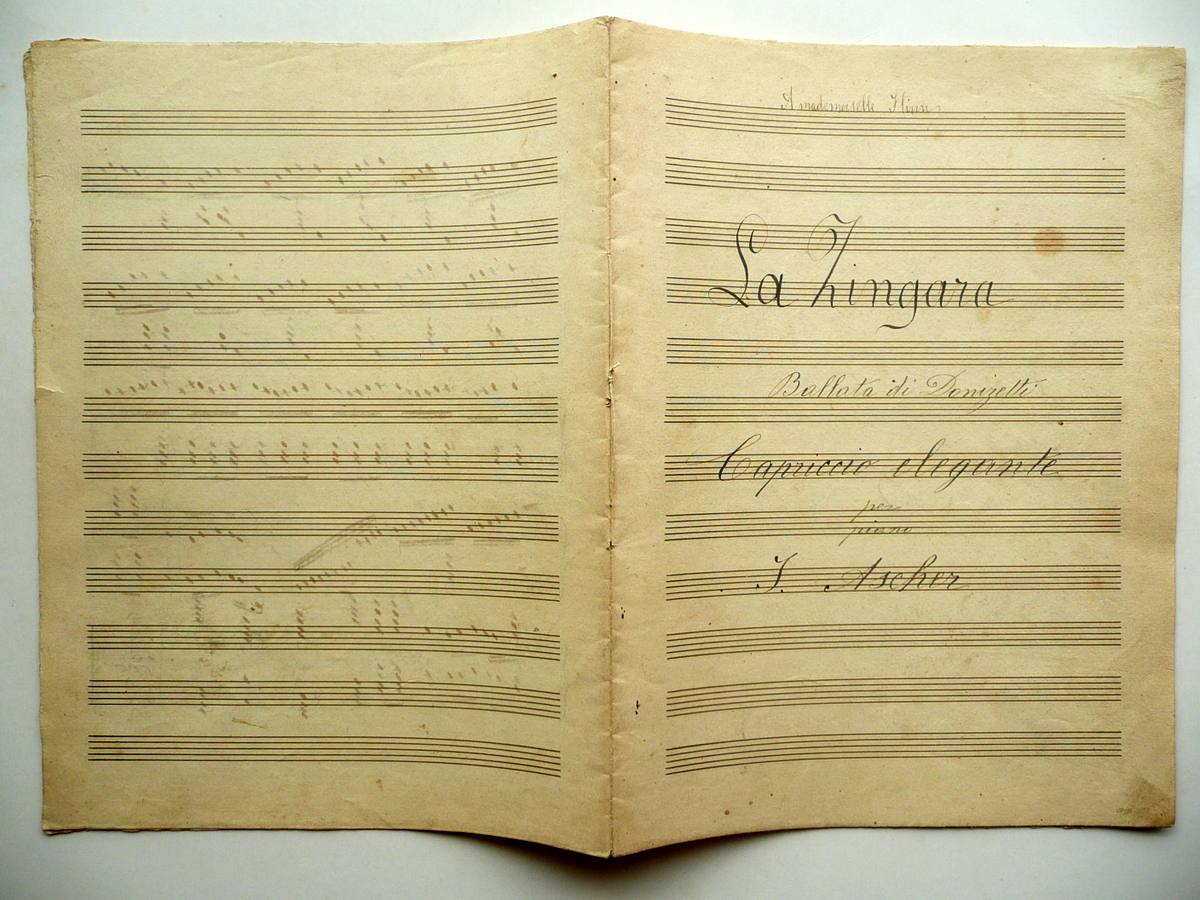 A mademoiselle
La Zingara
Ballata di Donizetti
Capriccio elegante
per
piano
J. Ascher